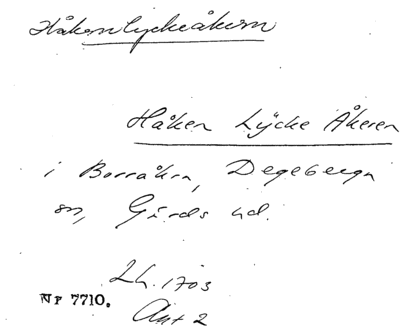 Håkenlyckeåkern
Håken Lÿcke Åkeren
i Borråkra, Degeberga
sn, Gärds hd.
Lh. 1703
Nr 7710.
Akt 2